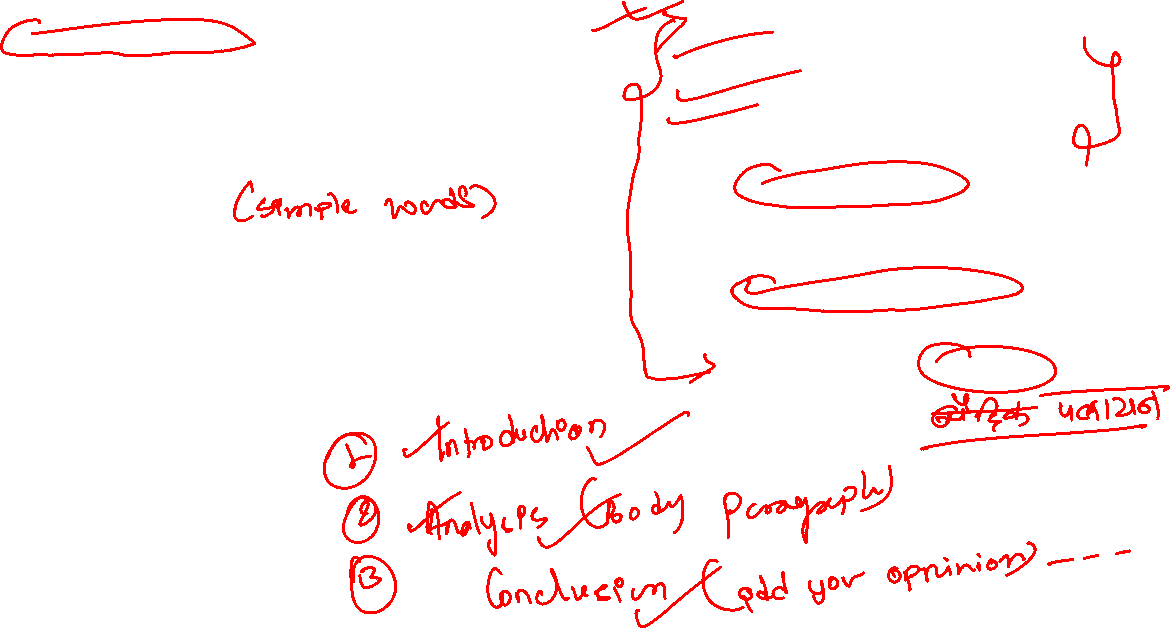 (simple words)
1 Introduction
2 Analysis (Body paragraph)
3 Conclusion (add your opninion) ----